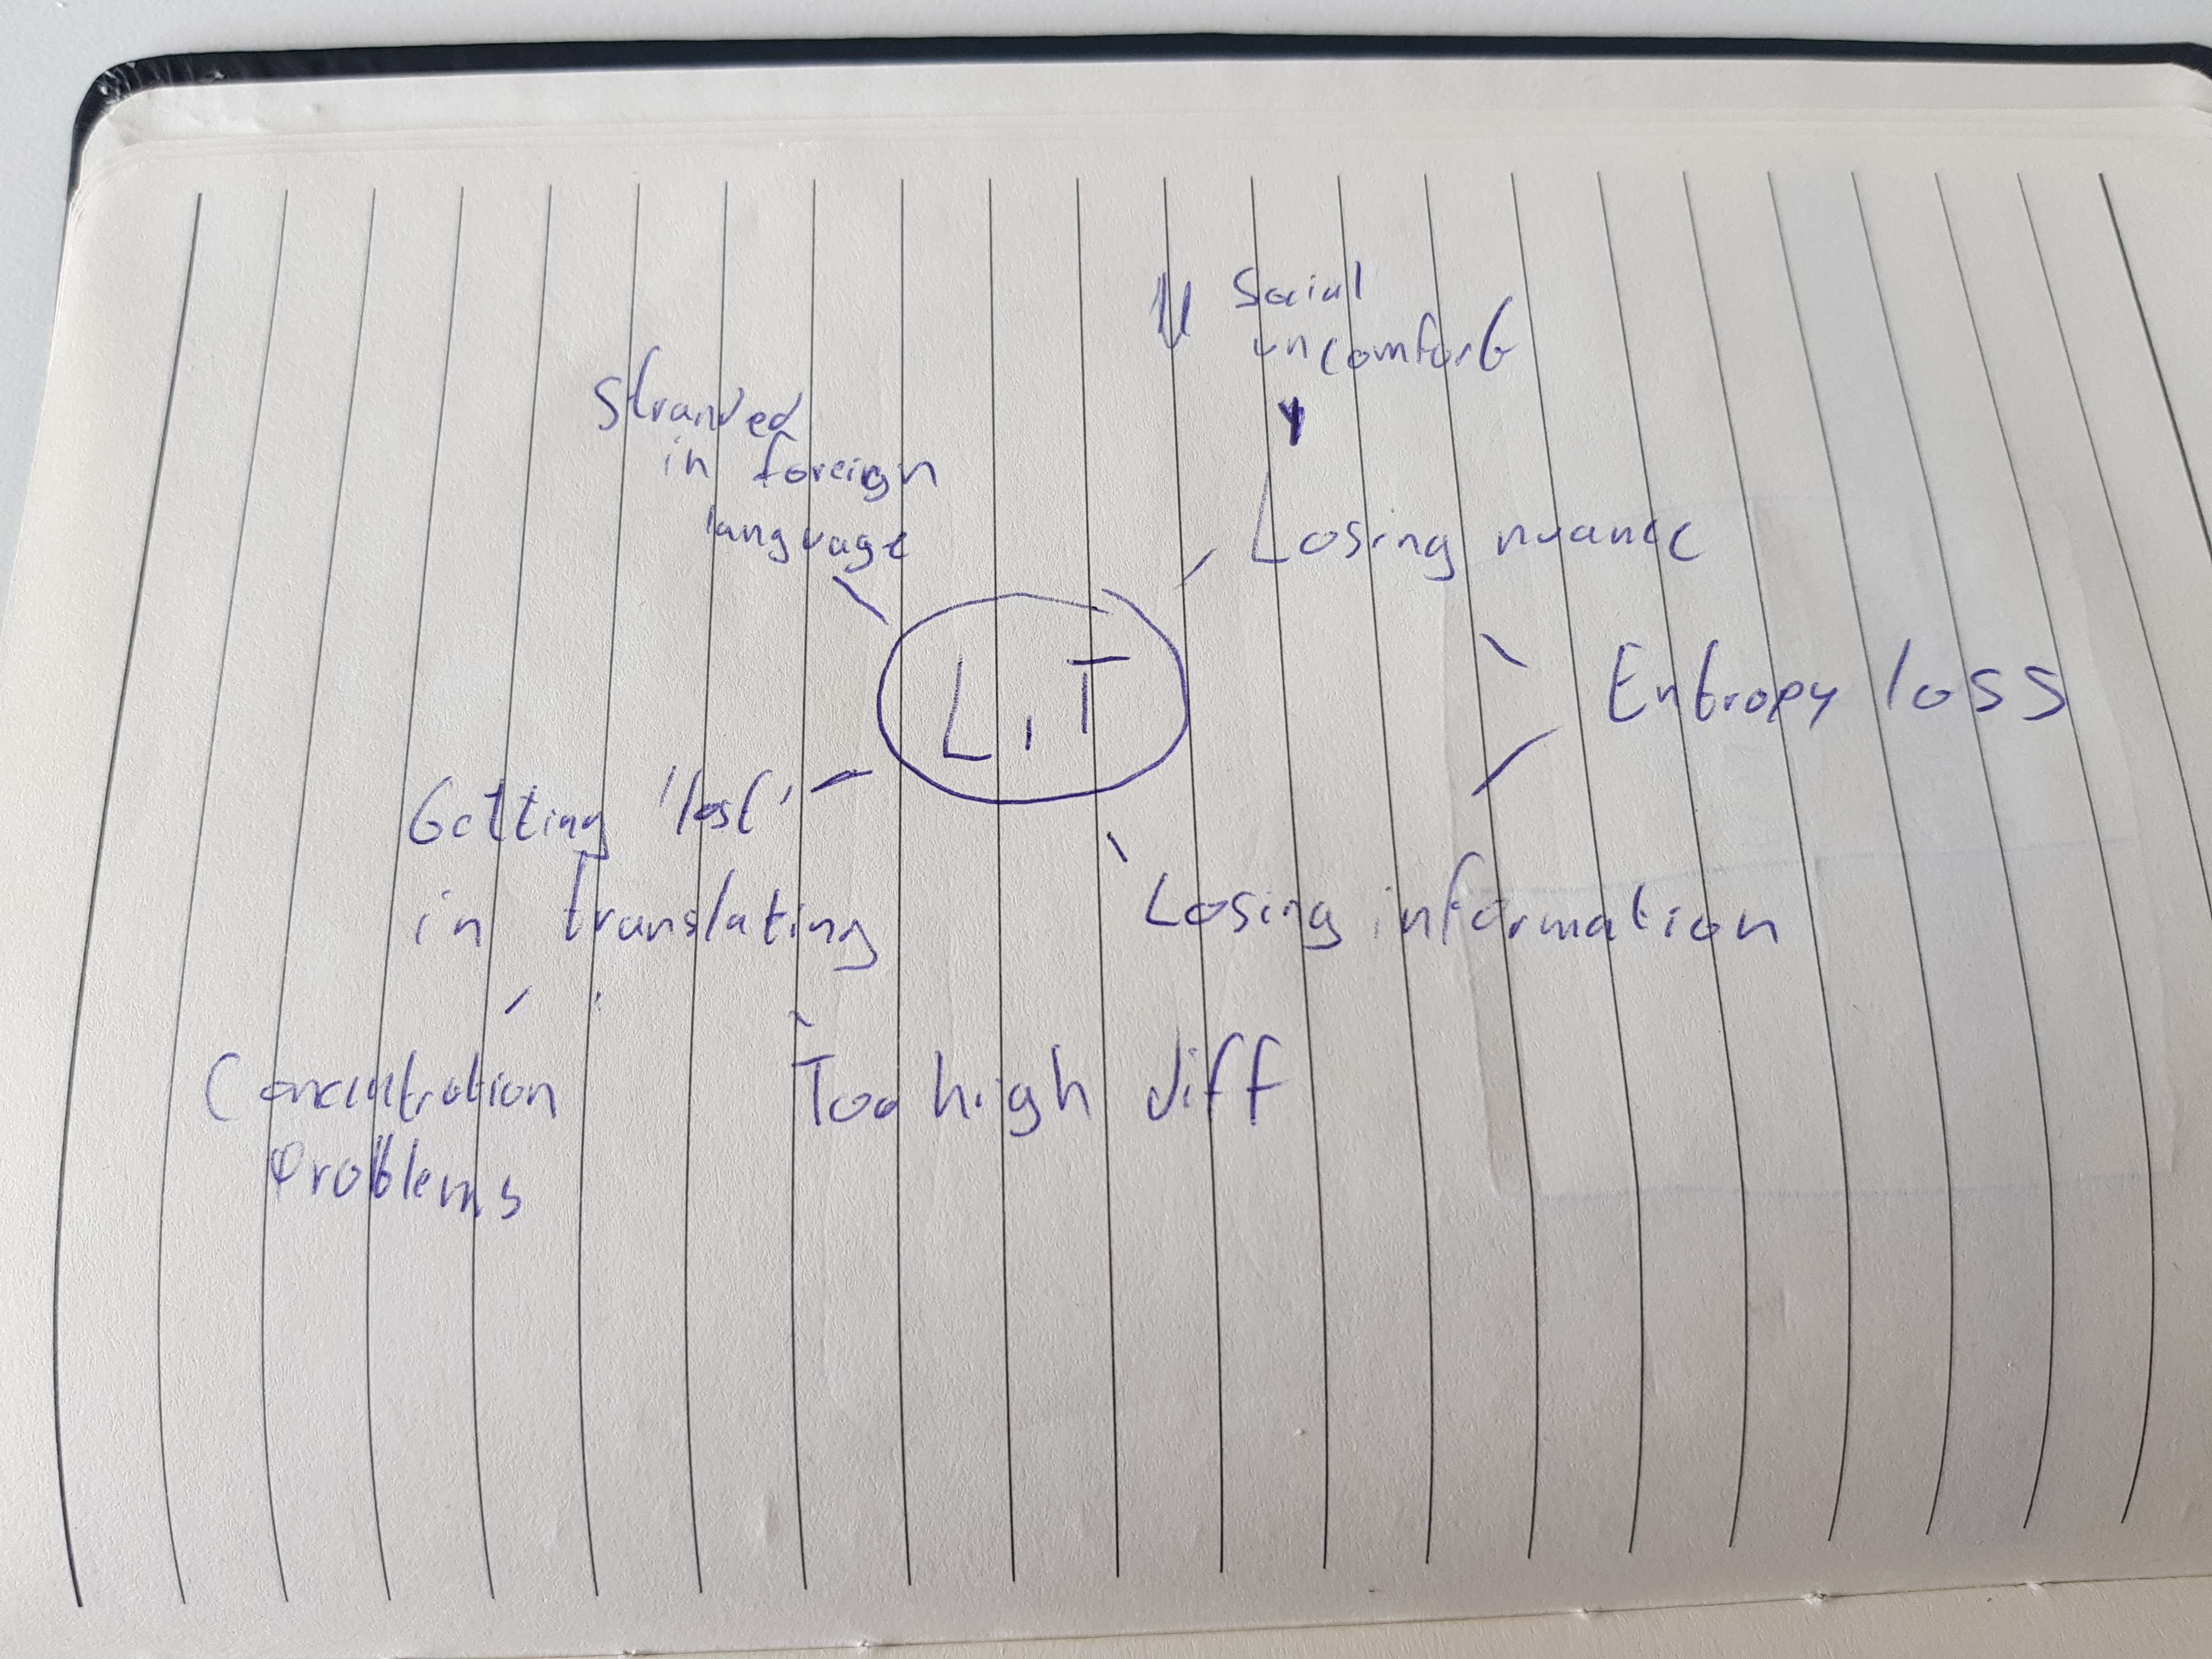 Social
uncomfort
Stranded
in foreign
language
Losing nuance
LiT
Entropy loss
Getting 'lost'
in translating
Losing information
Concentration
Problems
Too high diff